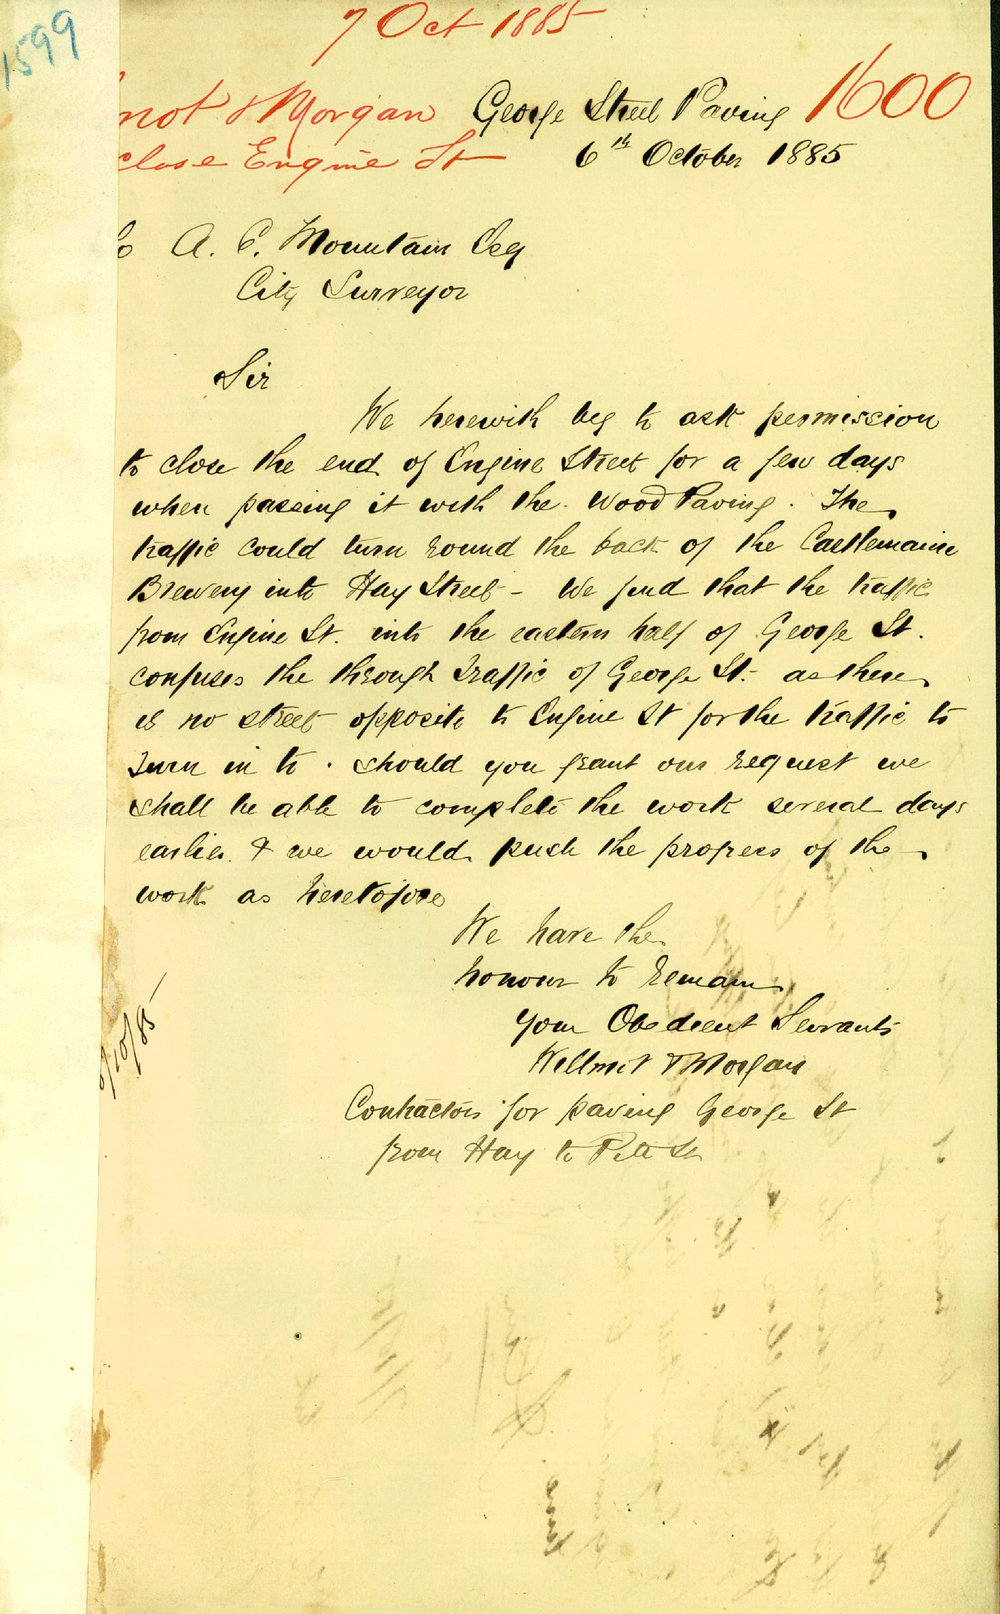 1599
7 Oct 1885
not & Morgan George Street Paving 1600
close Engine St 6th October 1885
A. C. Mountain Esq
City Surveyor
Sir
We herewith beg to ask permission
to close the end of Engine Street for a few days
when passing it with the Wood Paving. The
traffic could turn round the back of the Castlemaine
Brewery into Hay Street - We find that the traffic
from Engine St. into the eastern half of George St.
confuses the through Traffic of George St. as there
is no street opposite to Engine St for the traffic to
Turn in to. should you grant our request we
shall be able to complete the work several days
earlier & we would push the progress of the
work as heretofore
We have the
honour to remain
your Obedient Servants
& Morgan
Contractors for paving George St
from Hay to Pitt St
/10/85